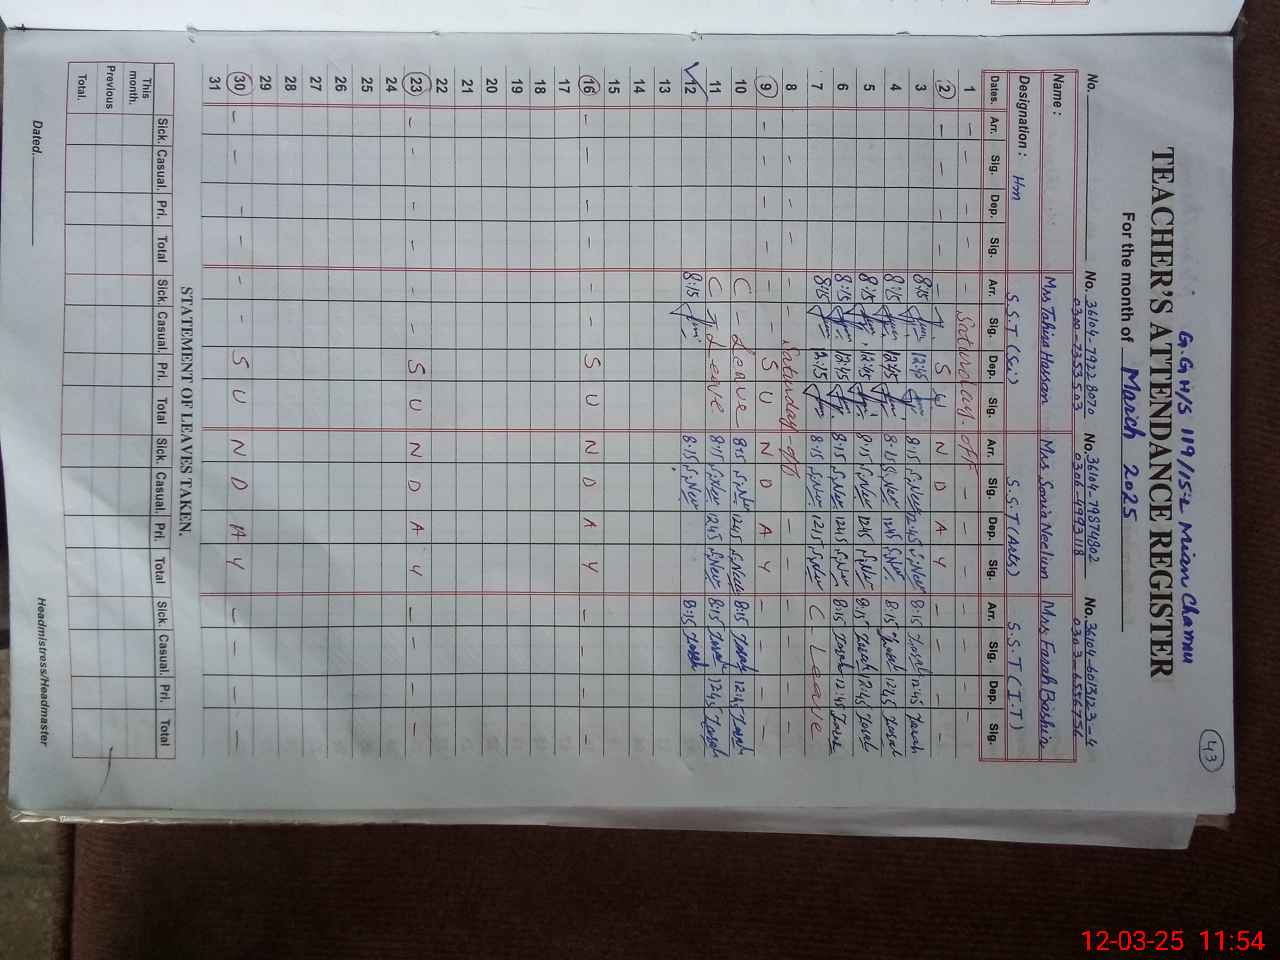 43
G.G H/S 119/15-L Mian Channu
TEACHER'S ATTENDANCE REGISTER
For the month of March 2025
No. No. 36104-7922 8070 No. 36104-79874802 No. 36104-6013123-4
0300-7353503 0306-4993118 0303-6556756
Name: Mrs Tahira Hassan Mrs Sonia Neelum Mrs Farah Bashir
Designation: Hm S.S.T (Sci) S.S.T (Arts) S.S.T (I.T)
Dates. Arr. Sig. Dep. Sig. Arr. Sig. Dep. Sig. Arr. Sig. Dep. Sig. Arr. Sig. Dep. Sig.
1 – – – – Saturday off – – – – – –
2 – – – – – – S U N D A Y – – – –
3 8:15 12:45 8:15 12:45 8:15 Farah 12:45 Farah
4 8:15 12:45 8:15 12:45 8:15 Farah 12:45 Farah
5 8:15 12:45 8:15 12:45 8:15 Farah 12:45 Farah
6 8:15 12:45 8:15 12:45 8:15 Farah 12:45 Farah
7 8:15 12:15 8:15 12:15 C. Leave
8 – – – – – – Saturday off – – – – – –
9 – – – – – – S U N D A Y – – – –
10 C – Leave 8:15 12:45 8:15 Farah 12:45 Farah
11 C – Leave 8:15 12:45 8:15 Farah 12:45 Farah
12 8:15 8:15 8:15 Farah
13
14
15
16 – – – – – – S U N D A Y – – – –
17
18
19
20
21
22
23 – – – – – – S U N D A Y – – – –
24
25
26
27
28
29
30 – – – – – – S U N D A Y – – – –
31
STATEMENT OF LEAVES TAKEN.
Sick. Casual. Pri. Total Sick. Casual. Pri. Total Sick. Casual. Pri. Total Sick. Casual. Pri. Total
This month.
Previous
Total.
Dated.
Headmistress/Headmaster
12-03-25 11:54